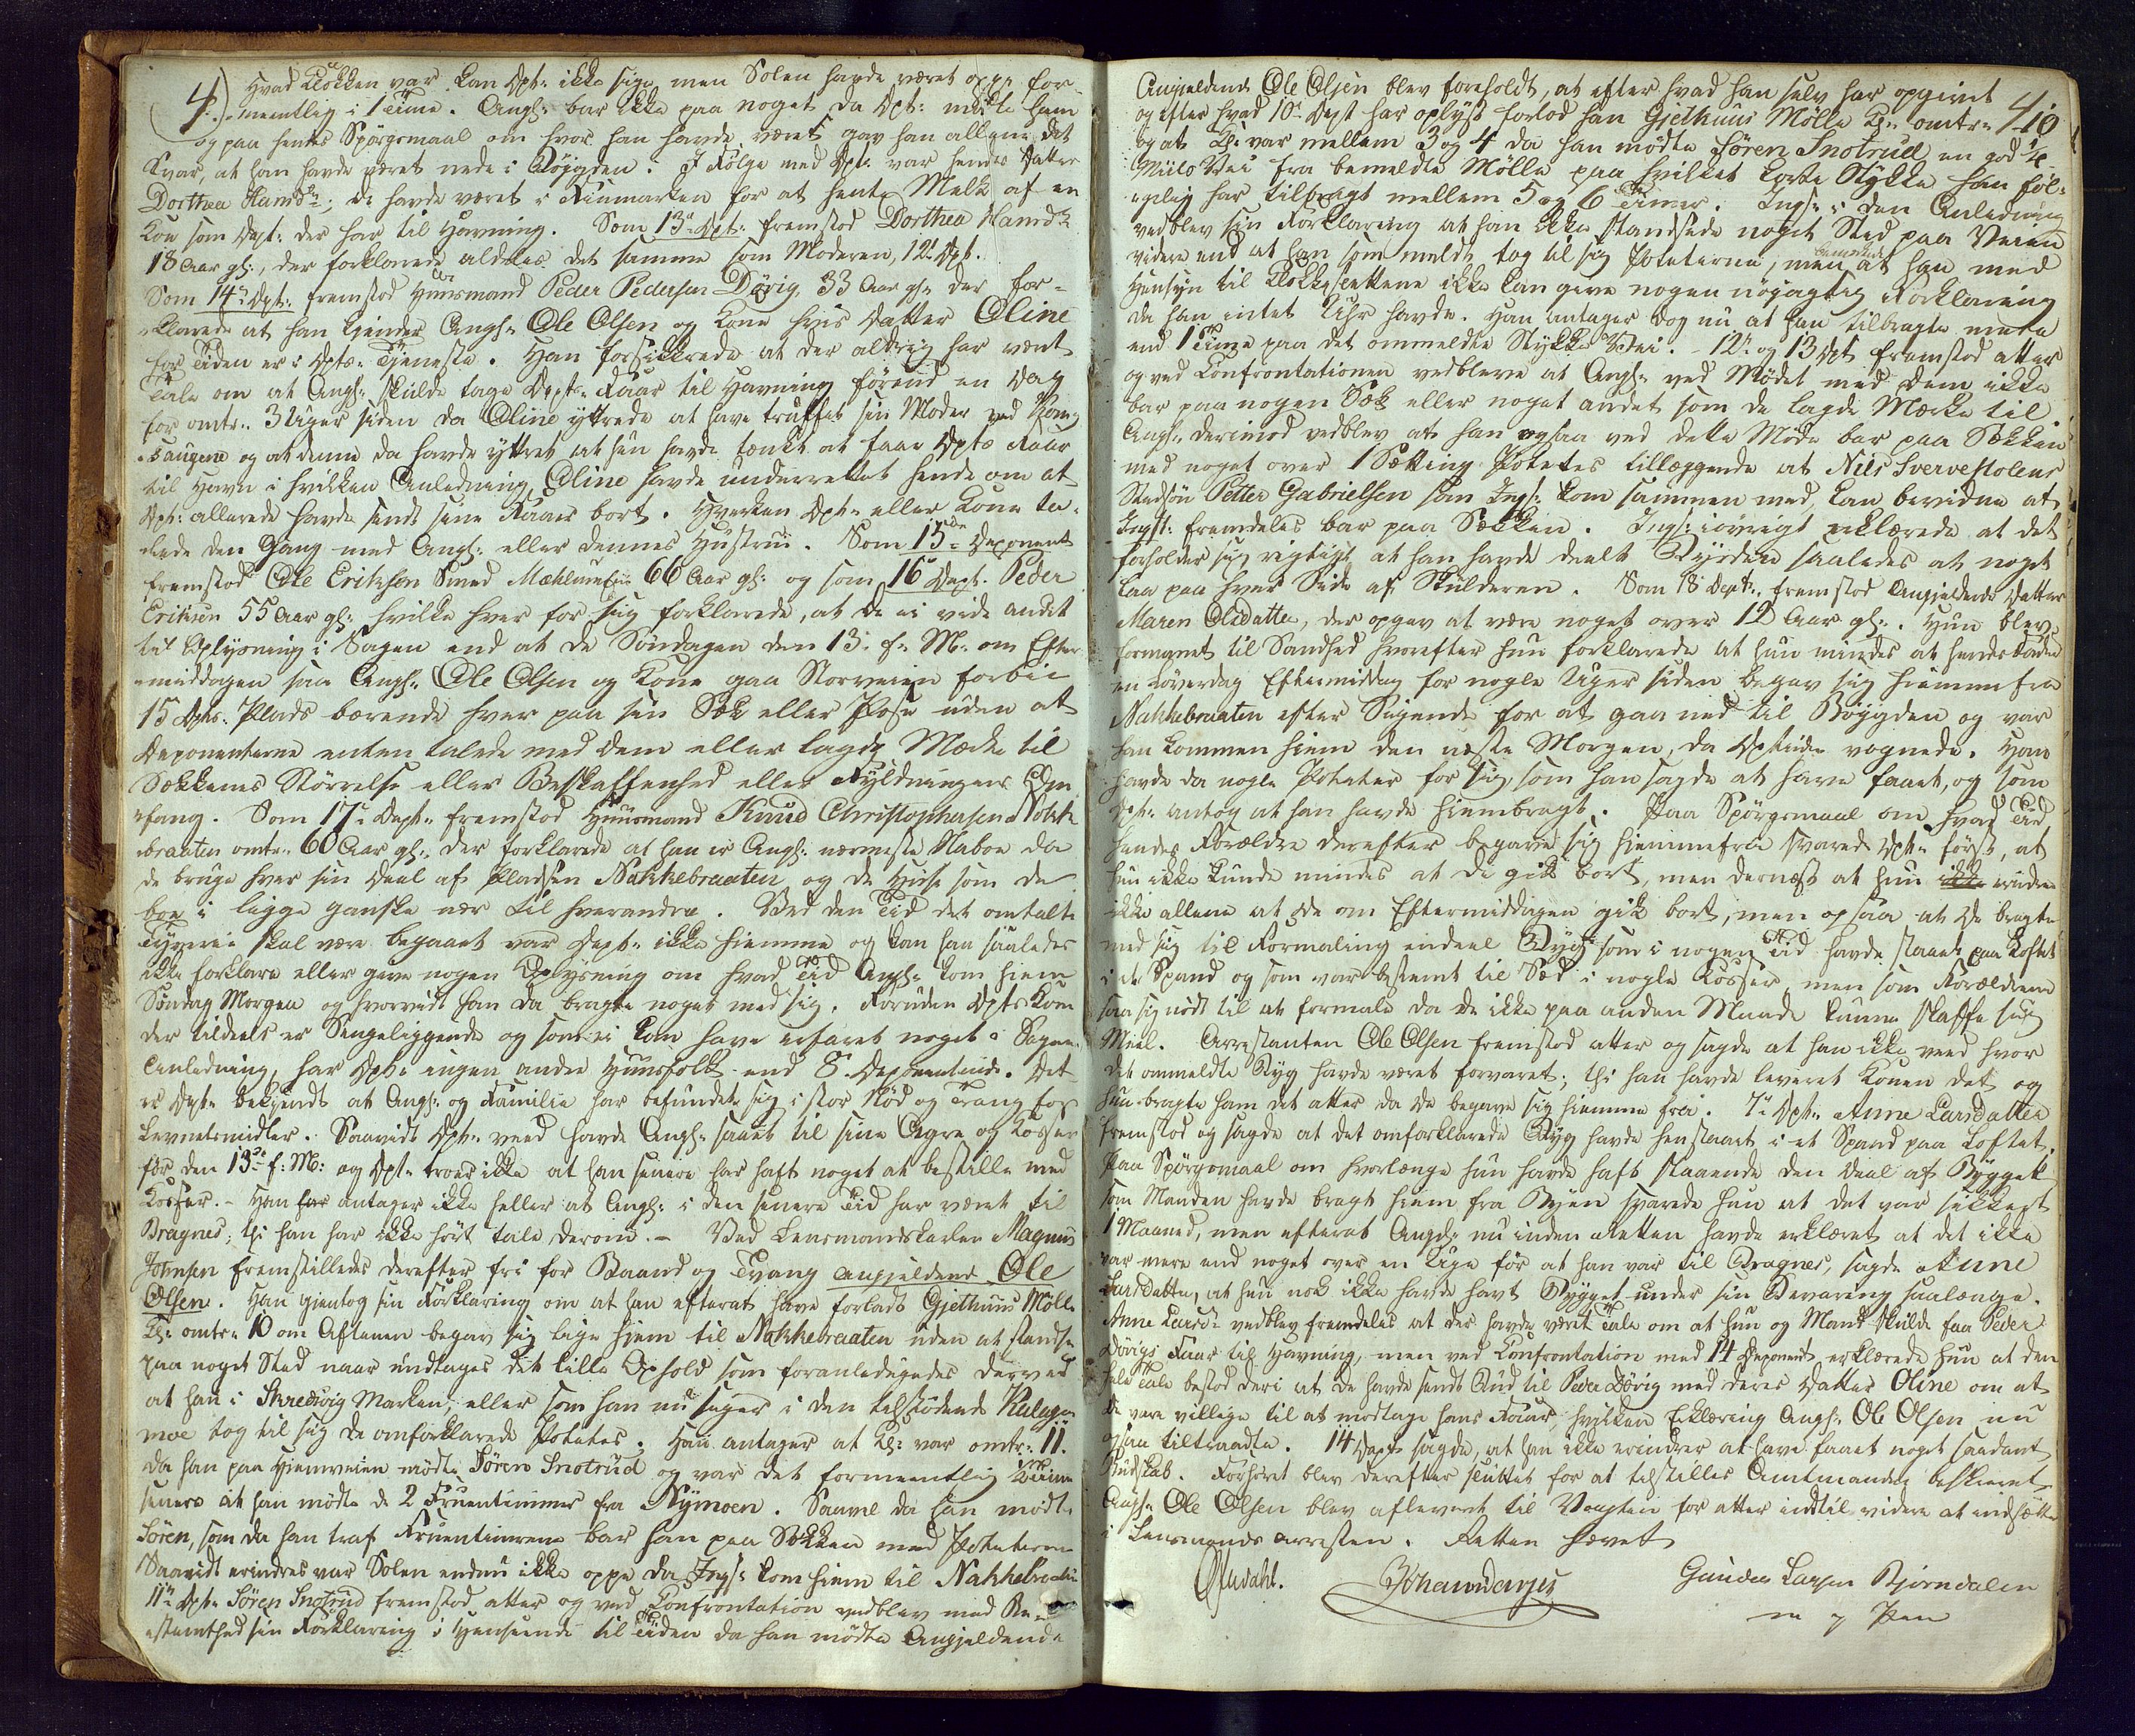 4.) Hvad Klokken var kan Dpt: ikke sige men Solen havde været oppe for-
mentlig i 1 Time. Angl: bar ikke paa noget da Dpt: mødte ham
og paa hendes Spörgsmaal om hvor han havde været gav han allene det
Svar, at han havde været nede i Bøigden. I Følge med Dpt: var hendes Datter
Dorthea Hansdr; de havde været i Finmarken for at hente Melk af en
Koe som Dept: der har til Havning. Som 13de Dpt: fremstod Dorthea Hansdr
18 Aar gl:, der forklarede aldeles det samme som Moderen, 12te Dpt.
Som 14de Dpt: fremstod Huusmand Peder Pedersen Dövig, 33 Aar gl: der for-
klarede at han kjender Angl: Ole Olsen og Kone hvis Datter Oline
for Tiden er i Dpts: Tjeneste. Han forsikkrede at der aldrig har vært
Tale om at Angl: skulde tage Dpts: Faar til Havning førend en Dag
for omtr: 3 Uger siden da Oline yttrede at have truffet sin Moder ved
Saugene og at denne da havde yttret at hun havde tænkt at faae Dpts Faar
til Havn i hvilken Anledning Oline havde underrettet hende om at
Dpt: allerede havde sendt sine Faar bort. Hverken Dpt: eller Kone ta-
lede den Gang med Angl: eller dennes Hustru. Som 15de Deponent
fremstod Ole Eriksen Smed 66 Aar gl: og som 16de Dept. Peder
Eriksen 55 Aar gl: hvilke hver for sig forklarede, at de ei vide andet
til Oplysning i Sagen end at de Søndagen den 13de f: M: om Efter-
middagen saae Angl: Ole Olsen og Kone gaa Storveien forbi
15 Dpts: Plads bærende hver paa sin Sæk eller Pose uden at
Deponenterne enten talede med dem eller lagde Mærke til
Sækkenes Störrelse eller Beskaffenhed eller Fyldningens Om-
fang. Som 17de Dept: fremstod Huusmand Knud Christophersen Nakke-
braaten omtr: 60 Aar gl:, der forklarede at han er Angl: nærmeste Naboe da
de bruge hver sin Deel af Pladsen Nakkebraaten og de Huse som de
boe i ligge ganske nær til hverandre. Ved den Tid det omtalte
Tyverie skal være begaaet var Dept: ikke hjemme og kan han saaledes
ikke forklare eller give nogen Oplysning om hvad Tid Angl: kom hjem
Søndag Morgen og hvorvidt han da bragte noget med sig. Foruden Dpts Kone
der tildeels er Sengeliggende og som ei kan have erfaret noget i Sagens
Anledning, har Dpt: ingen andre Huusfolk end 8. Deponentinde. Det
er Dpt: bekjendt at Angl: og Familie har befundet sig i stor Nød og Trang for
Levnetsmidler. Saavidt Dpt: veed havde Angl: saaet til sine Agre og Løsser
før den 13de f: M: og Dpt: troer ikke at han senere har haft noget at bestille med
Løsser. - Han antager ikke heller at Angl: i den senere Tid har været til
Bragnes, thi han har ikke hört tale derom. - Ved Lensmandskarlen Magnus
Johnsen fremstilledes derefter fri for Baand og Tvang Angjeldende Ole
Olsen. Han gjentog sin Forklaring om at han efterat have forladt Gjethuus Mölle
Kl: omtr: 10 om Aftenen begav sig lige hjem til Nakkebraaten uden at standse
paa noget Sted naar undtages det lille Ophold som foranledigedes derved
at han i Skredsvig Marken, eller som han nu siger i den tilstødende
moe tog til sig de omforklarede Potetes. Han antager at Kl: var omtr: 11.
da han paa Hjemveien mødte Sören Snotrud og var det formeentlig Time
senere at han mødte de 2 Fruentimmer fra Nymoen. Saavel da han mødte
Sören, som da han traf Fruentimrene bar han paa Sækken med Poteterne
Saavidt erindres var Solen endnu ikke oppe da Ingl: kom hjem til Nakkebraaten
11te Dpt: Sören Snotrud fremstod atter og ved Confrontation vedblev med Be-
stemthed sin Forklaring i Henseende til Tiden da han mødte Angjeldende
4
10
Angjeldende Ole Olsen blev foreholdt, at efter hvad han selv har opgivet
og efter hvad 10de Dept har oplyst forlod han Gjethuus Mölle Kl: omtr:
og at Kl: var mellem 3 og 4 da han mødte Sören Snotrud en god 1/4
Miils Vei fra bemeldte Mölle paa hvilket korte Stykke han føl-
gelig har tilbragt mellem 5 og 6 Timer. Ingl: i den Anledning
vedblev sin Forklaring at han ikke standsede noget Sted paa Veien
videre end at han som meldt tog til sig Poteterne, men at han med
Hensyn til Klokkeslettene ikke kan give nogen nøjagtig Forklaring
da han intet Uhr havde. Han antager dog nu at han tilbragte mere
end 1 Time paa det ommeldte Stykke Vei. - 12te og 13 Dpt fremstod atter
og ved Confrontationen vedbleve at Angl: ved Mødet med dem ikke
bar paa nogen Sæk eller noget andet som de lagde Mærke til
Angl: derimod vedblev at han ogsaa ved dette Møde bar paa Sækken
med noget over 1 Sætting Potetes tillæggende at Nils Svervestolens
Stedsön Petter Gabrielsen som Ingl: kom sammen med, kan bevidne at
Ingl: fremdeles bar paa Sækken. Ingl: iøvrigt erklærede at det
forholder sig rigtigt at han havde deelt Byrden saaledes at noget
laa paa hver Side af Skulderen. Som 18 Dept: fremstod Angjeldendes Datter
Maren Olsdatter, der opgav at være noget over 12 Aar gl:. Hun blev
formanet til Sandhed hvorefter hun forklarede at hun mindes at hendes Fader
en Löverdag Eftermiddag for nogle Uger siden begav sig hjemmefra
Nakkebraaten efter Sigende for at gaa ned til Bøigden og var
han kommen hjem den næste Morgen, da Dptinden vognede. Han
havde da nogle Poteter for sig, som han sagde at have faaet, og som
Dpt: antog at han havde hjembragt. Paa Spörgsmaal om hvad Tid
hendes Forældre derefter begave sig hjemmefra svarede Dpt: først, at
hun ikke kunde mindes at de gik bort, men dernæst at hun erindrer
ikke allene at de om Eftermiddagen gik bort, men ogsaa at de bragte
med sig til Formaling endeel Byg som i nogen Tid havde staaet paa Loftet
i et Spand og som var bestemt til Sæd i nogle Løsser, men som Forældrene
saa sig nødt til at formale da de ikke paa anden Maade kunne skaffe sig
Meel. Arrestanten Ole Olsen fremstod atter og sagde at han ikke veed hvor
det ommeldte Byg havde været forvaret; thi han havde leveret Konen det og
hun bragte ham det atter da de begave sig hjemme fra. 7de Dpt: Anne Larsdatter
fremstod og sagde at det omforklarede Byg havde henstaaet i et Spand paa Loftet.
Paa Spörgsmaal om hvorlænge hun havde haft staaende den Deel af Bygget
som Manden havde bragt hjem fra Byen svarede hun at det var sikkert
1 Maaned, men efterat Angl: nu inden Retten havde erklæret at det ikke
var mere end noget over en Uge før at han var til Bragnes, sagde Anne
Larsdatter, at hun nok ikke havde havt Bygget under sin Bevaring saalænge.
Anne Larsdr vedblev fremdeles at der havde været Tale om at hun og Mand skulde faa Peder
Dövigs Faar til Havning, men ved Confrontation med 14 Deponent erklærede hun at den
hele Tale bestod deri at de havde sendt Bud til Peder Dövig med deres Datter Oline om at
de vare villige til at modtage hans Faar, hvilken Erklæring Angl: Ole Olsen nu
ogsaa tiltraadte. 14 Dept: sagde, at han ikke erindrer at have faaet noget saadant
Budskab. Forhøret blev derefter sluttet for at tilstilles Amtmanden beskrevet
Angl: Ole Olsen blev afleveret til Vogten for atter indtil videre at indsættes
i Lensmands arresten. Retten hævet
Gunder Larsen Bjørndalen
m p Pen